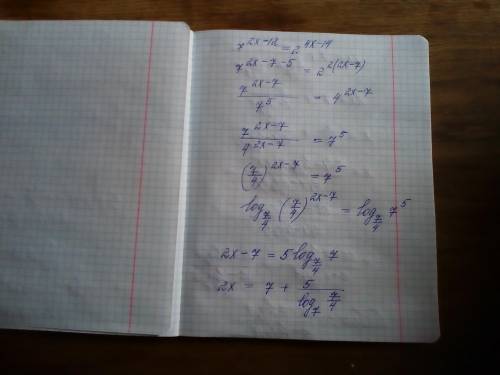 7^{2x-12} = 2^{4x-14}
7^{2x-7-5} = 2^{2(2x-7)}
\frac{7^{2x-7}}{7^5} = 4^{2x-7}
\frac{7^{2x-7}}{4^{2x-7}} = 7^5
(\frac{7}{4})^{2x-7} = 7^5
log_{\frac{7}{4}} (\frac{7}{4})^{2x-7} = log_{\frac{7}{4}} 7^5
2x-7 = 5 log_{\frac{7}{4}} 7
2x = 7 + \frac{5}{log_7 \frac{7}{4}}